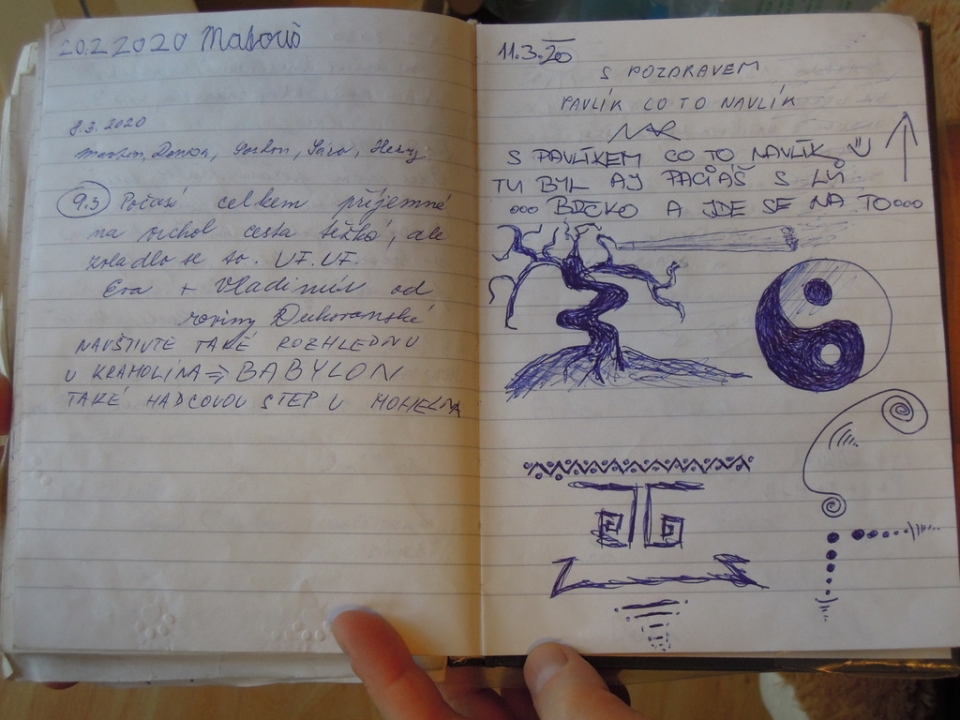 20.2 2020 Matouš
8.3. 2020
9.3 Počasí celkem příjemné
na vrchol cesta težká, ale
zvladlo se to. UF. UF.
Eva + Vladimír od
roviny Dukovanské
NAVŠTIVTE TAKÉ ROZHLEDNU
U KRAMOLÍNA => BABYLON
TAKÉ HADCOVOU STEP U MOHELNA
11.3.20
S POZDRAVEM
PAVLÍK CO TO NAVLÍK
S PAVLÍKEM CO TO NAVLÍK
TU BYL AJ PAGÁAŠ S
ooo BRCKO A JDE SE NA TO ooo